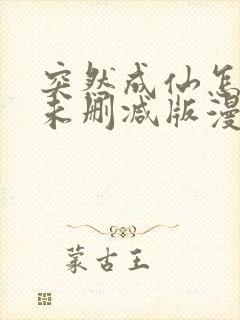 突然成仙怎
未删减版漫
蒙古王